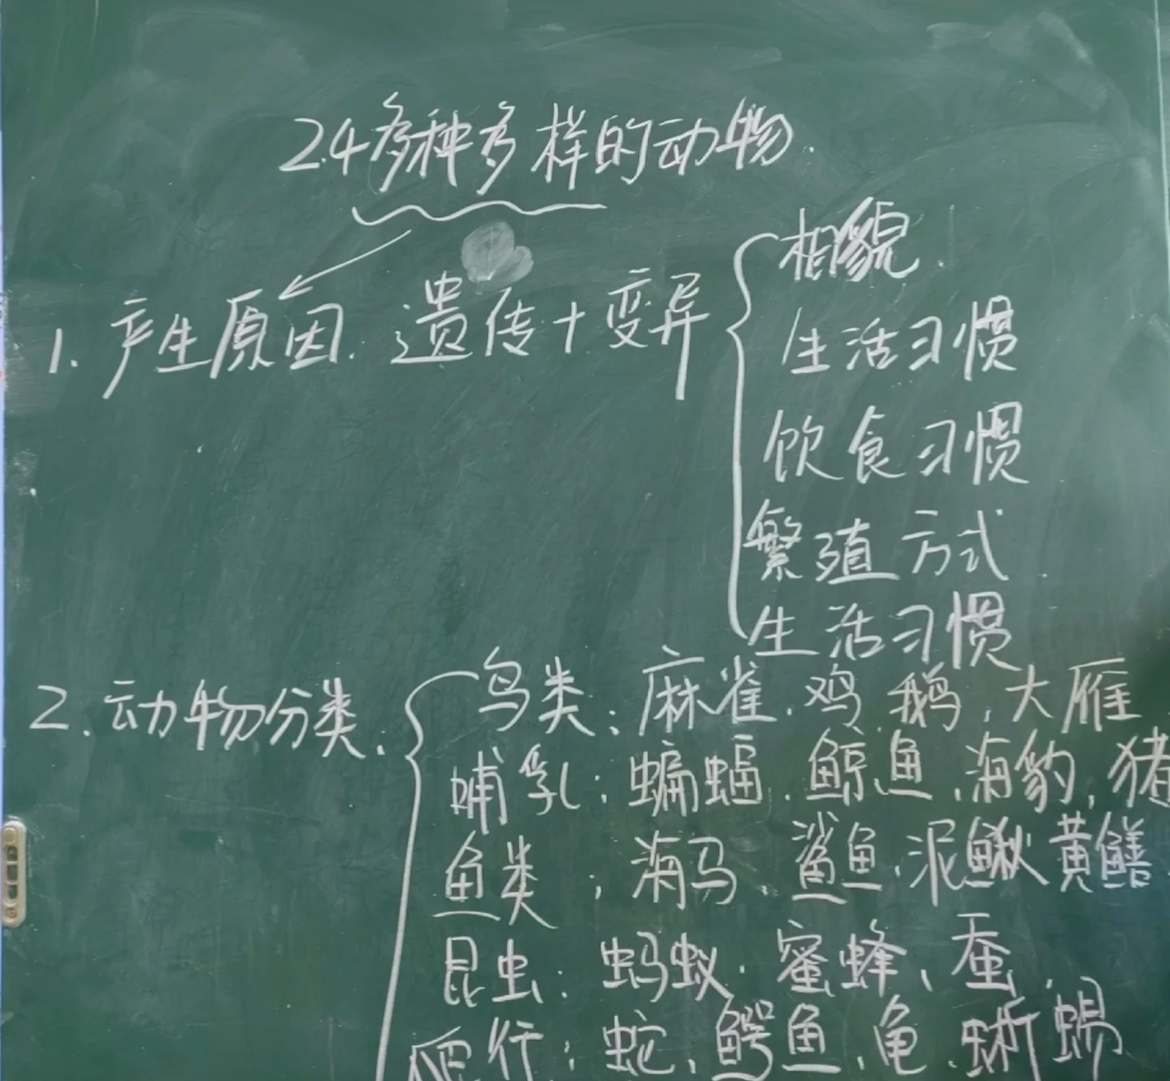 2.4多种多样的动物.
1. 产生原因. 遗传+变异
相貌.
生活习惯
饮食习惯
繁殖方式
生活习惯
2. 动物分类.
鸟类: 麻雀.鸡 鹅.大雁
哺乳: 蝙蝠.鲸鱼.海豹.猪
鱼类: 海马.鲨鱼.泥鳅 黄鳝
昆虫: 蚂蚁.蜜蜂、蚕.
爬行: 蛇.鳄鱼.龟.蜥蜴